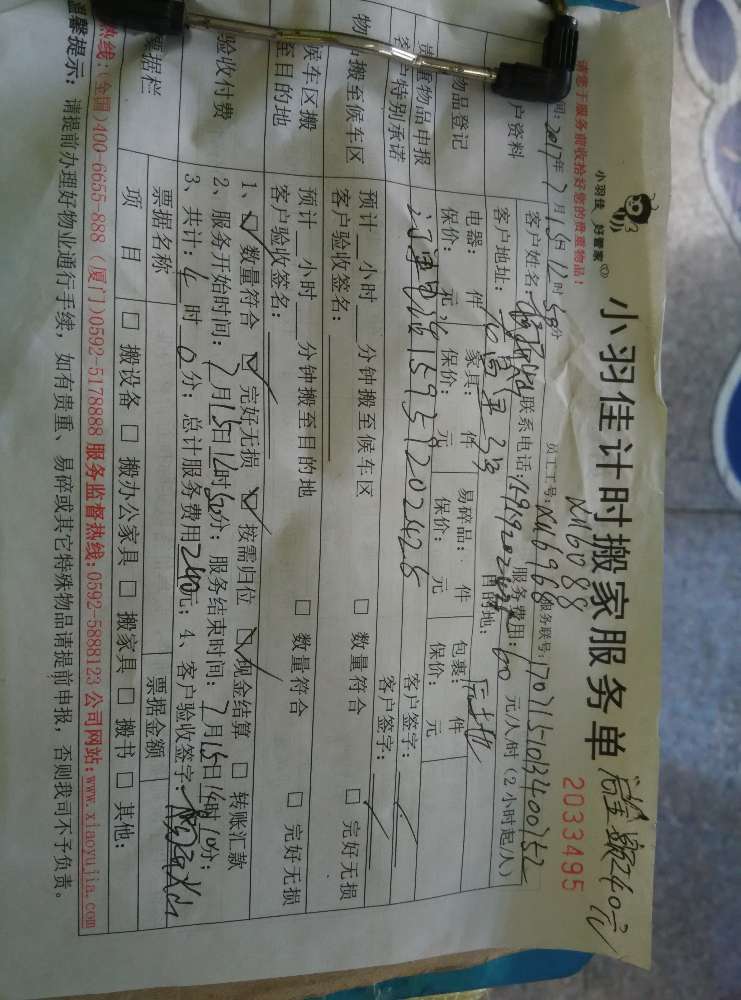 小羽佳 好管家
小羽佳计时搬家服务单
启金额240元
2033495
NN6088
请您于服务前收拾好您的贵重物品!
员工工号:NN6968 服务联号:170715-1013400752
间:2017年7月15日12时50分
户资料
客户姓名: 联系电话: 服务费用:60元/人/时(2小时起/人)
客户地址: 目的地:
物品登记
电器: 件 家具: 件 易碎品: 件 包裹: 件
保价: 元 保价: 元 保价: 元 保价: 元
贵重物品申报 客户签字:
客户特别承诺 客户签字:
物品搬至候车区
预计 小时 分钟搬至候车区 □ 数量符合 □ 完好无损
客户验收签名:
候车区搬至目的地
预计 小时 分钟搬至目的地 □ 数量符合 □ 完好无损
客户验收签名:
验收付费
1、☑ 数量符合 ☑ 完好无损 ☑ 按需归位 ☑ 现金结算 □ 转账汇款
2、服务开始时间:7月15日12时 分;服务结束时间:7月15日14时10分;
3、共计:4时0分;总计服务费用240元;4、客户验收签字:
票据栏
票据名称 票据金额
项 目 □ 搬设备 □ 搬办公家具 □ 搬家具 □ 搬书 □ 其他:
热线:(全国)400-6655-888 (厦门)0592-5178888 服务监督热线:0592-5888123 公司网站:www.xiaoyujia.com
温馨提示:请提前办理好物业通行手续,如有贵重、易碎或其它特殊物品请提前申报,否则我司不予负责。